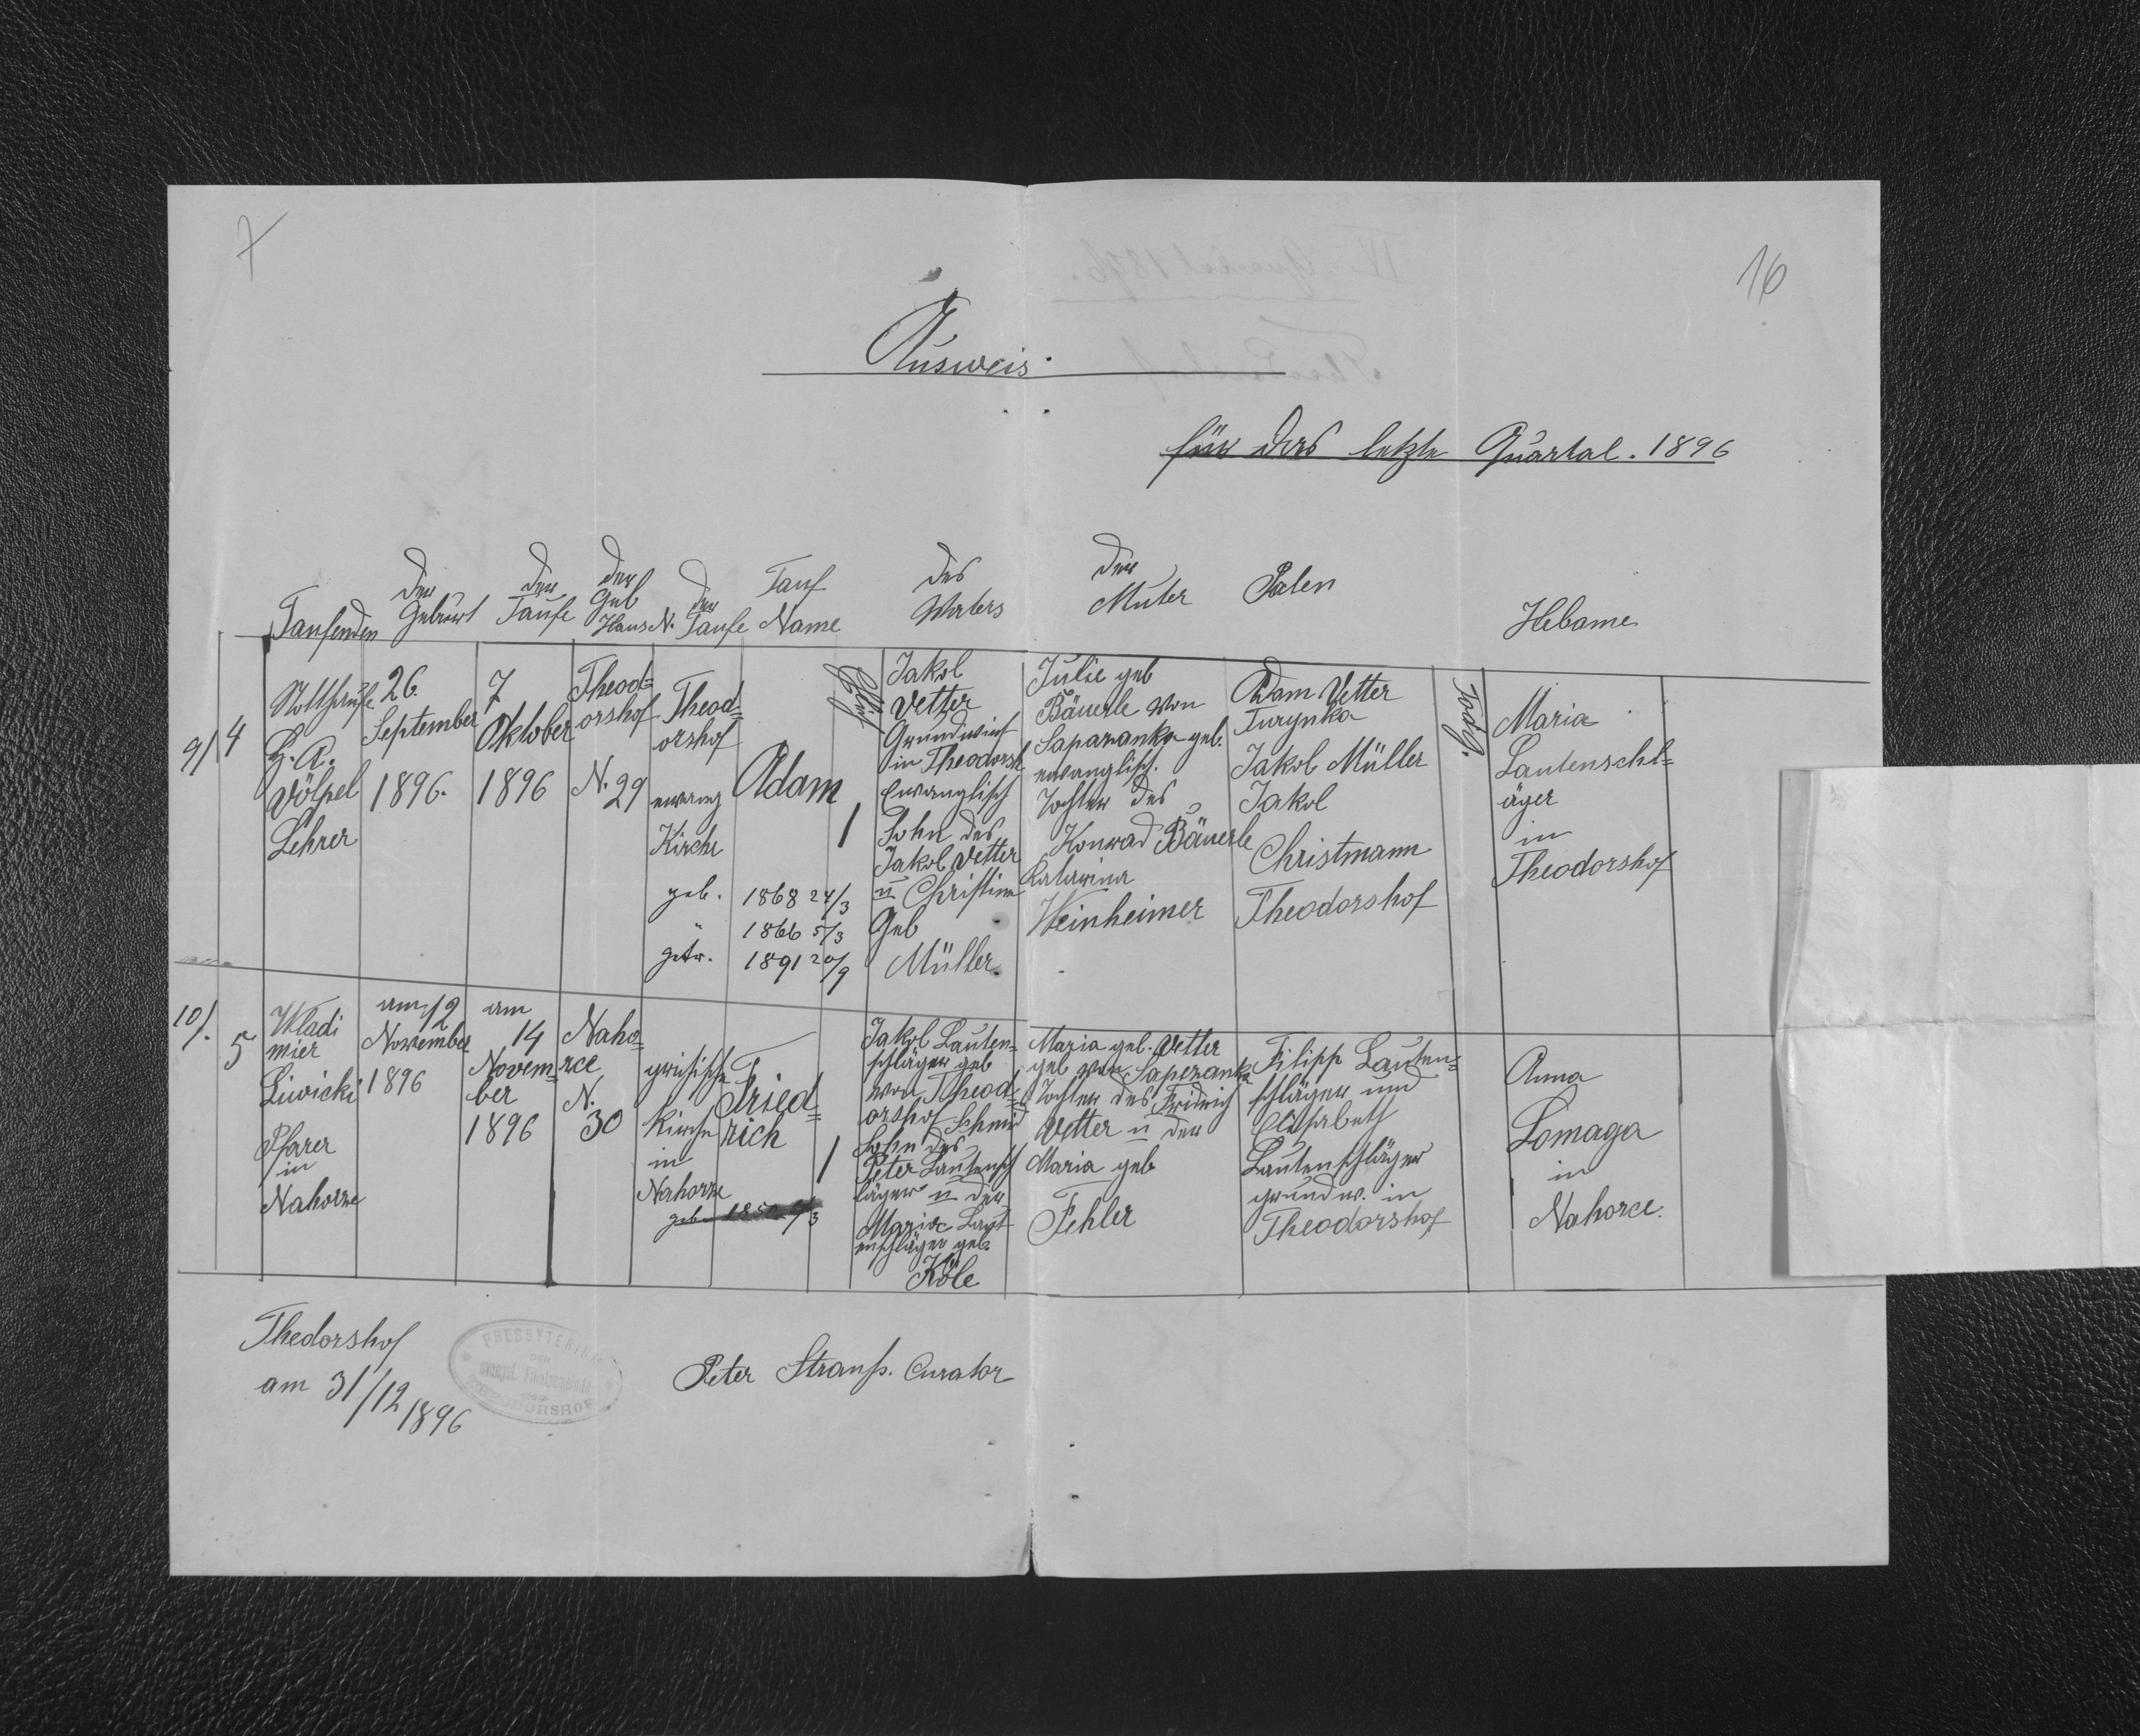 7
16
Ausweis.
für das letzte Quartal. 1896
Taufenden
der Geburt
der Taufe
der Geb Haus N.
der Taufe
Tauf Name
des Vaters
der Muter
Paten
Hebame
9/ 4
Nothtaufe
G. A.
Völpel
Lehrer
26.
September
1896.
7
Oktober
1896
Theod=
orshof
N. 29
Theod=
orshof
evang
Kirche
Adam
1
geb. 1868 24/3
" 1866 5/3
getr. 1891 20/9
Jakob
Vetter
Grundwirt
in Theodorsh
Evanglisch
Sohn des
Jakob Vetter
u Christine
Geb
Müller.
Julie geb
Bäuerle von
Saparanka geb.
evanglisch.
Tochter des
Konrad Bäuerle
Katarina
Weinheimer
Adam Vetter
Turynka
Jakob Müller
Jakob
Christmann
Theodorshof
Maria
Lautenschl=
äger
in
Theodorshof
10/. 5
Wladi
mier
Liwicki
Pfarer
in
Nahorze
am 12
November
1896
am
14
Novem=
ber
1896
Naho=
rce
N.
30
grichische
Kirche
in
Nahorze
Fried=
rich
1
Jakob Lauten=
schläger geb
von Theod=
orshof Schmid
Sohn des
Peter Lautensch
läger u der
Maria Laut
enschläger geb.
Köle
Maria geb. Vetter
geb von Saperanka
Tochter des Fridrich
Vetter u der
Maria geb
Fehler
Filipp Lauten=
schläger und
Elisabeth
Lautenschläger
grundw. in
Theodorshof
Anna
Lomaga
in
Nahorce.
Thedorshof
am 31/12 1896
PRESBYTERIUM
DER
evangel. Filialgemeinde
THEODORSHOF
Peter Strauß. Curator